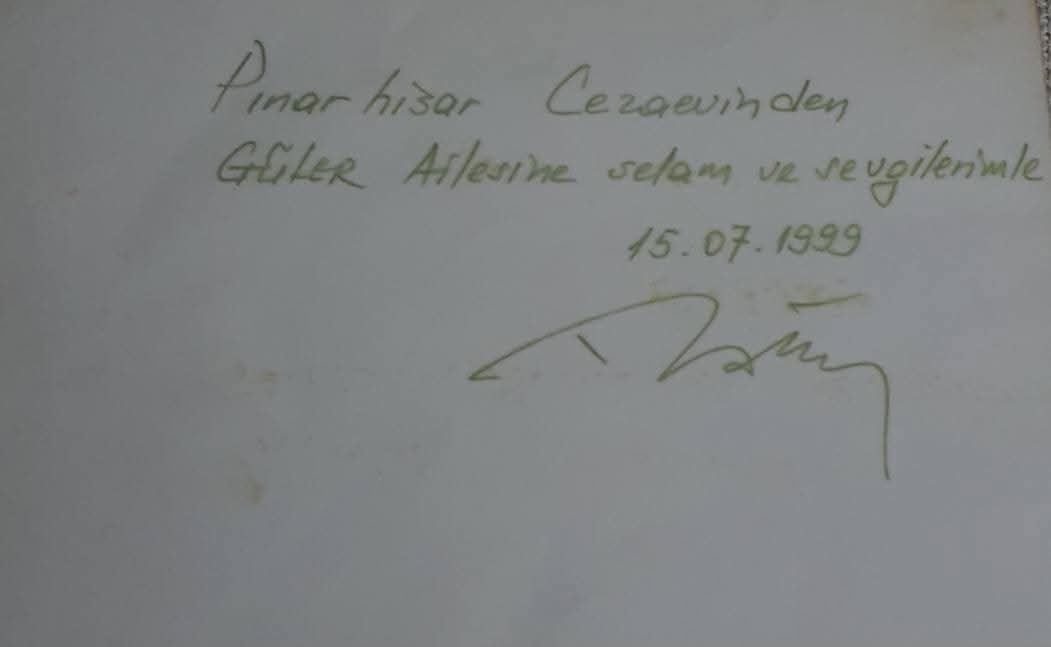 Pınarhisar Cezaevinden
GÜLER Ailesine selam ve sevgilerimle
15.07.1999